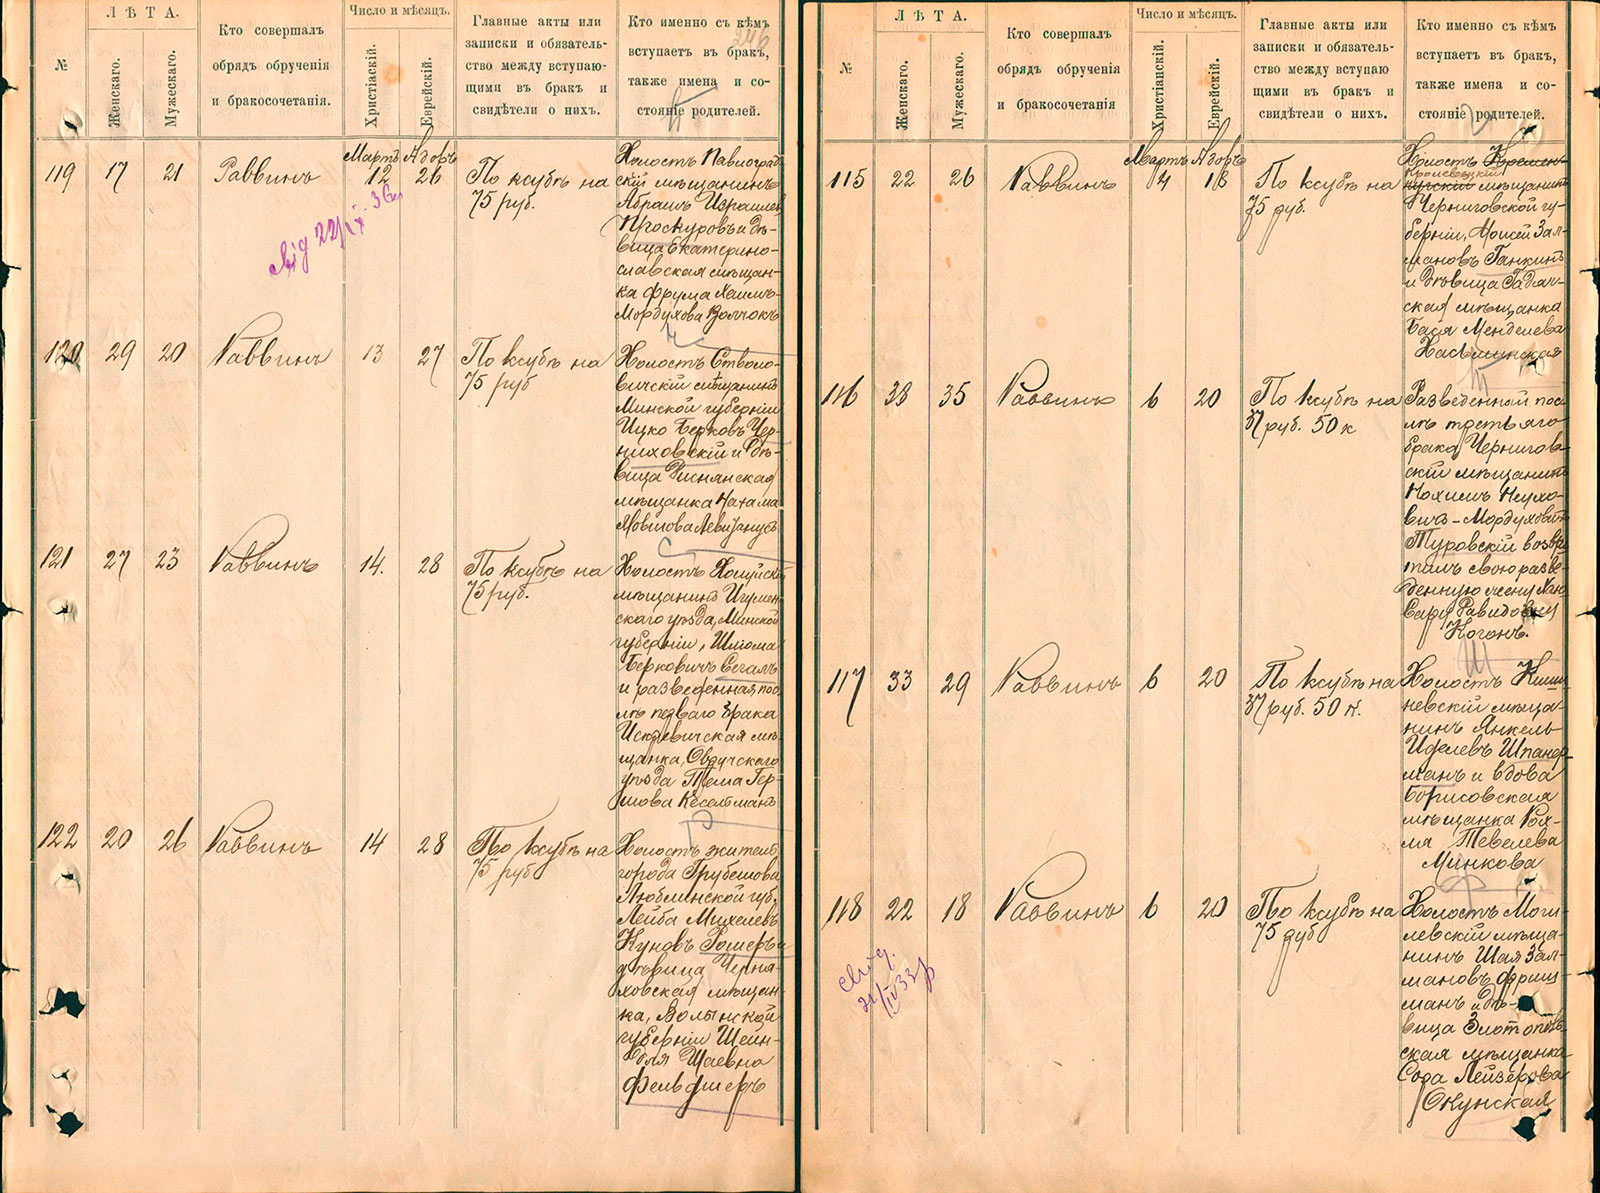 ЛѢТА.
Число и мѣсяцъ.
№
Женскаго.
Мужескаго.
Кто совершалъ
обрядъ обрученія
и бракосочетанія.
Христіаскій.
Еврейскій.
Главные акты или
записки и обязатель-
ство между вступаю-
щими въ бракъ и
свидѣтели о нихъ.
Кто именно съ кѣмъ
вступаетъ въ бракъ,
также имена и со-
стояніе родителей.
119 17 21 Раввинъ
Мартъ 12
Адоръ 26
По ксубѣ на
75 руб.
Холостъ Павлоград-
скій мѣщанинъ
Абрамъ Израилевъ
Проскуровъ и дѣ-
вица Екатерино-
славская мѣщан-
ка Фрума Хаимъ-
Мордухова Волчокъ
120 29 20 Раввинъ 13 27
По ксубѣ на
75 руб
Холостъ Стволо-
вичскій мѣщанинъ
Минской губерніи
Ицко Берковъ Чер-
ниховскій и дѣ-
вица Диснянская
мѣщанка Нахама
121 27 23 Раввинъ 14. 28
По ксубѣ на
75 руб.
Холостъ Холуйскій
мѣщанинъ Игумен-
скаго уѣзда, Минской
губерніи, Шлиома
Берковичъ Сегалъ
и разведенная пос-
лѣ перваго брака
Искоревичская мѣ-
щанка, Овручскаго
уѣзда Тема Гер-
шова Кесельманъ
122 20 26 Раввинъ 14 28
По ксубѣ на
75 руб
Холостъ житель
города Грубешова
Люблинской губ.
Лейба Михелевъ
Куновъ Рошеръ и
дѣвица Черня-
ховская мѣщан-
ка, Волынской
губерніи Шейн-
для Шаевна
Фельдшеръ
ЛѢТА.
Число и мѣсяцъ.
№
Женскаго.
Мужескаго.
Кто совершалъ
обрядъ обрученія
и бракосочетанія
Христіанскій.
Еврейскій.
Главные акты или
записки и обязатель-
ство между вступаю
щими въ бракъ и
свидѣтели о нихъ.
Кто именно съ кѣмъ
вступаетъ въ бракъ,
также имена и со-
стояніе родителей.
115 22 26 Раввинъ
Мартъ 4
Адоръ 18
По ксубѣ на
75 руб.
Холостъ Кремен-
Кролевецкій
чугскій мѣщанинъ
Черниговской гу-
берніи, Моисей Зал-
мановъ Ганкинъ
и дѣвица Гадяч-
ская мѣщанка
Бася Менделева
116 38 35 Раввинъ 6 20
По ксубѣ на
37 руб. 50 к
Разведенный пос-
лѣ третьяго
брака Чернигов-
скій мѣщанинъ
Нохимъ Неухо-
вичъ-Мордуховичъ
Туровскій возвра-
тилъ свою разве-
денную жену Хаю
Сару Давидовну
Когонъ.
117 33 29 Раввинъ 6 20
По ксубѣ на
37 руб. 50 к.
Холостъ Киши-
невскій мѣща-
нинъ Янкель
Иделевъ Шпанер-
манъ и вдова
Борисовская
мѣщанка Рох-
ма Тевелева
Минкова
118 22 18 Раввинъ 6 20
По ксубѣ на
75 руб
Холостъ Моги-
левскій мѣща-
нинъ Шая Зал-
мановъ Фриш-
манъ и дѣ-
вица Златополь-
ская мѣщанка
Сора Лейзерова
Окунская